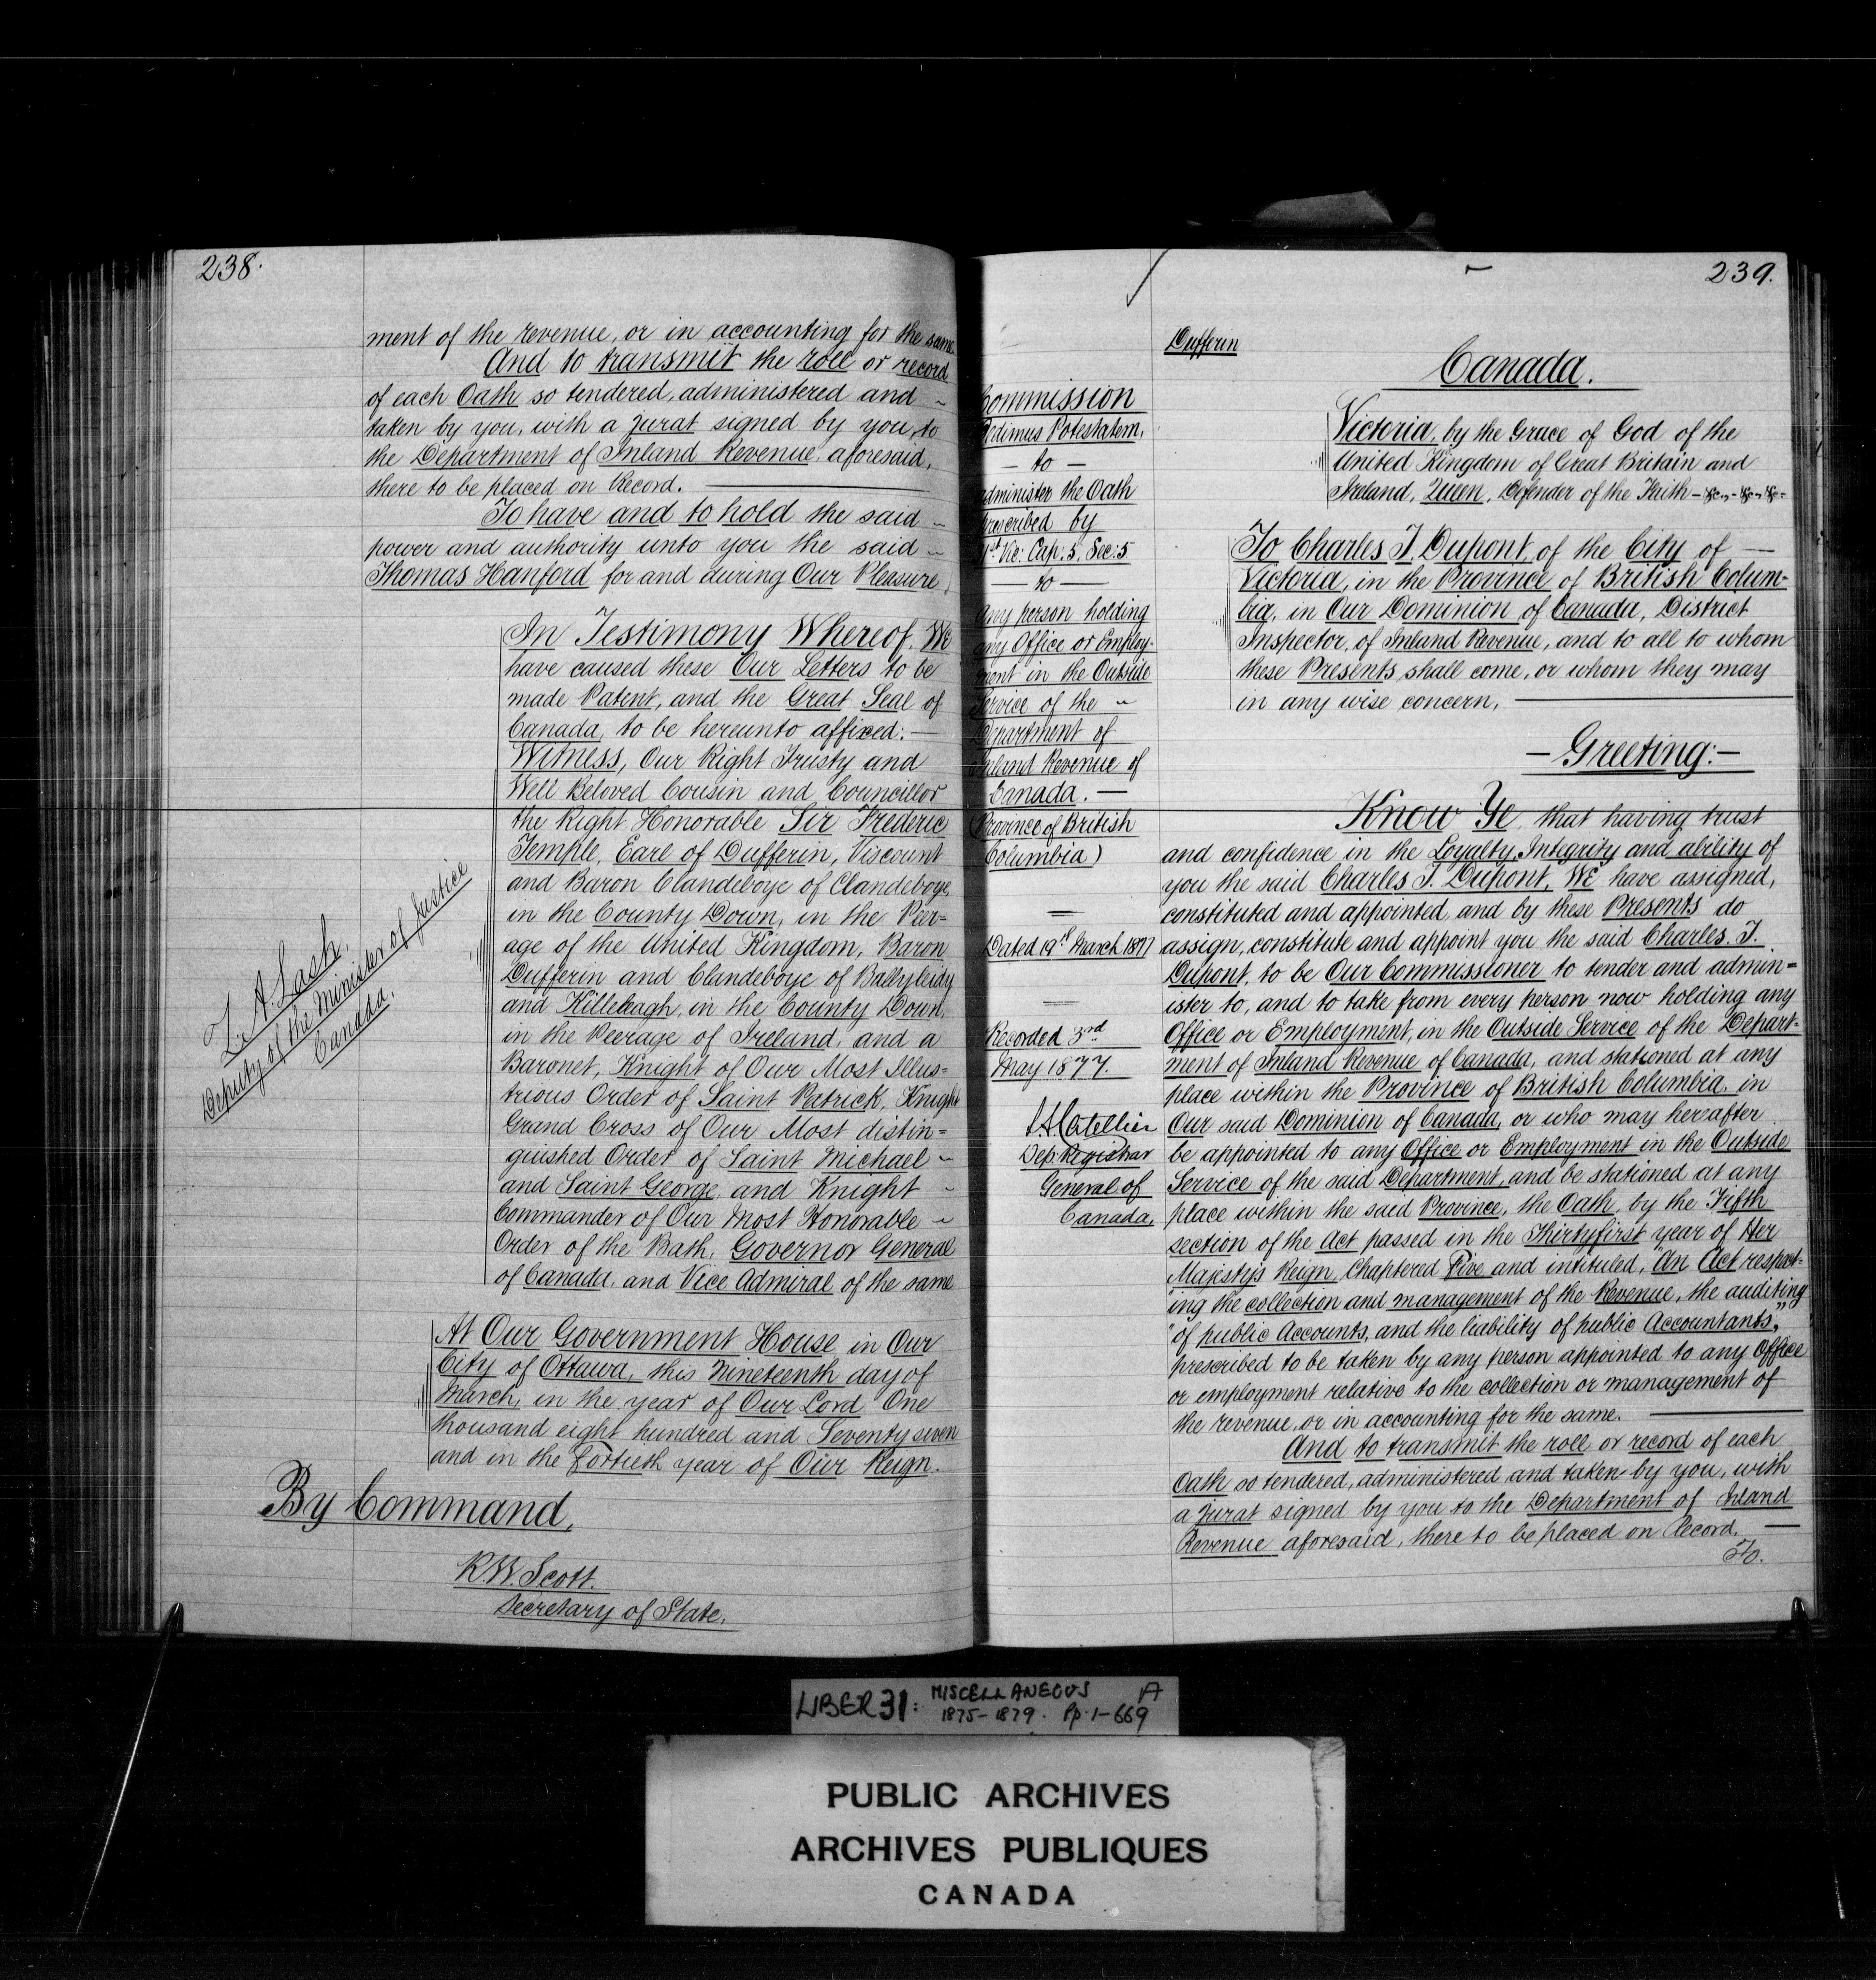 238.
ment of the revenue, or in accounting for the same
And to transmit the roll or record
of each Oath so tendered, administered and ~
taken by you, with a jurat signed by you, to
the Department of Inland Revenue aforesaid,
there to be placed on Record. —
To have and to hold the said ~
power and authority unto you the said ~
Thomas Hanford for and during Our Pleasure,
In Testimony Whereof, We
have caused these Our Letters to be
made Patent, and the Great Seal of
Canada, to be hereunto affixed: —
Witness, Our Right Trusty and
Well Beloved Cousin and Councillor
the Right Honorable Sir Frederic
Temple, Earl of Dufferin, Viscount
and Baron Clandeboye of Clandeboye,
in the County Down, in the Peer=
age of the United Kingdom, Baron
Dufferin and Clandeboye of Ballyleidy
and Killeleagh, in the County Down,
in the Peerage of Ireland, and a
Baronet, Knight of Our Most Illus=
trious Order of Saint Patrick, Knight
Grand Cross of Our Most distin=
guished Order of Saint Michael ~
and Saint George, and Knight ~
Commander of Our Most Honorable ~
Order of the Bath, Governor General
of Canada, and Vice Admiral of the same
Z. A. Lash.
Deputy of the Minister of Justice
Canada.
At Our Government House, in Our
City of Ottawa, this Nineteenth day of
March, in the year of Our Lord One
thousand eight hundred and Seventy seven
and in the fortieth year of Our Reign.
By Command,
R. W. Scott.
Secretary of State.
239.
Dufferin
Commission
Dedimus Potestatem,
— to —
administer the Oath
prescribed by
31st Vic: Cap: 5. Sec: 5
— to —
Any person holding
any Office or Employ-
ment in the Outside
Service of the ~
Department of
Inland Revenue of
Canada. —
(Province of British
Columbia)
Dated 19th March 1877
Recorded 3rd
May 1877.
Catellier
Dep: Registrar
General of
Canada.
Canada.
Victoria, by the Grace of God of the
United Kingdom of Great Britain and
Ireland, Queen, Defender of the Faith - &c., - &c., &c. -
To Charles T. Dupont, of the City of —
Victoria, in the Province of British Colum-
bia, in Our Dominion of Canada, District
Inspector, of Inland Revenue, and to all to whom
these Presents shall come, or whom they may
in any wise concern, —
— Greeting: —
Know Ye, that having trust
and confidence in the Loyalty, Integrity and ability of
you the said Charles T. Dupont, We have assigned,
constituted and appointed, and by these Presents do
assign, constitute and appoint you the said Charles. T.
Dupont, to be Our Commissioner to tender and admin=
ister to, and to take from every person now holding any
Office or Employment, in the Outside Service of the Depart-
ment of Inland Revenue of Canada, and stationed at any
place within the Province of British Columbia, in
Our said Dominion of Canada, or who may hereafter
be appointed to any Office or Employment in the Outside
Service of the said Department, and be stationed at any
place within the said Province, the Oath, by the Fifth
section of the Act passed in the Thirtyfirst year of Her
Majesty's Reign, Chaptered Five and intituled, "An Act respect-
"ing the collection and management of the Revenue, the auditing
"of public Accounts, and the liability of public Accountants,"
prescribed to be taken by any person appointed to any Office
or employment relative to the collection or management of
the revenue, or in accounting for the same. —
And to transmit the roll or record of each
Oath so tendered, administered and taken by you, with
a jurat signed by you to the Department of Inland
Revenue aforesaid, there to be placed on Record. —
To.
LIBER 31: MISCELLANEOUS A
1875-1879. Pp. 1-669
PUBLIC ARCHIVES
ARCHIVES PUBLIQUES
CANADA